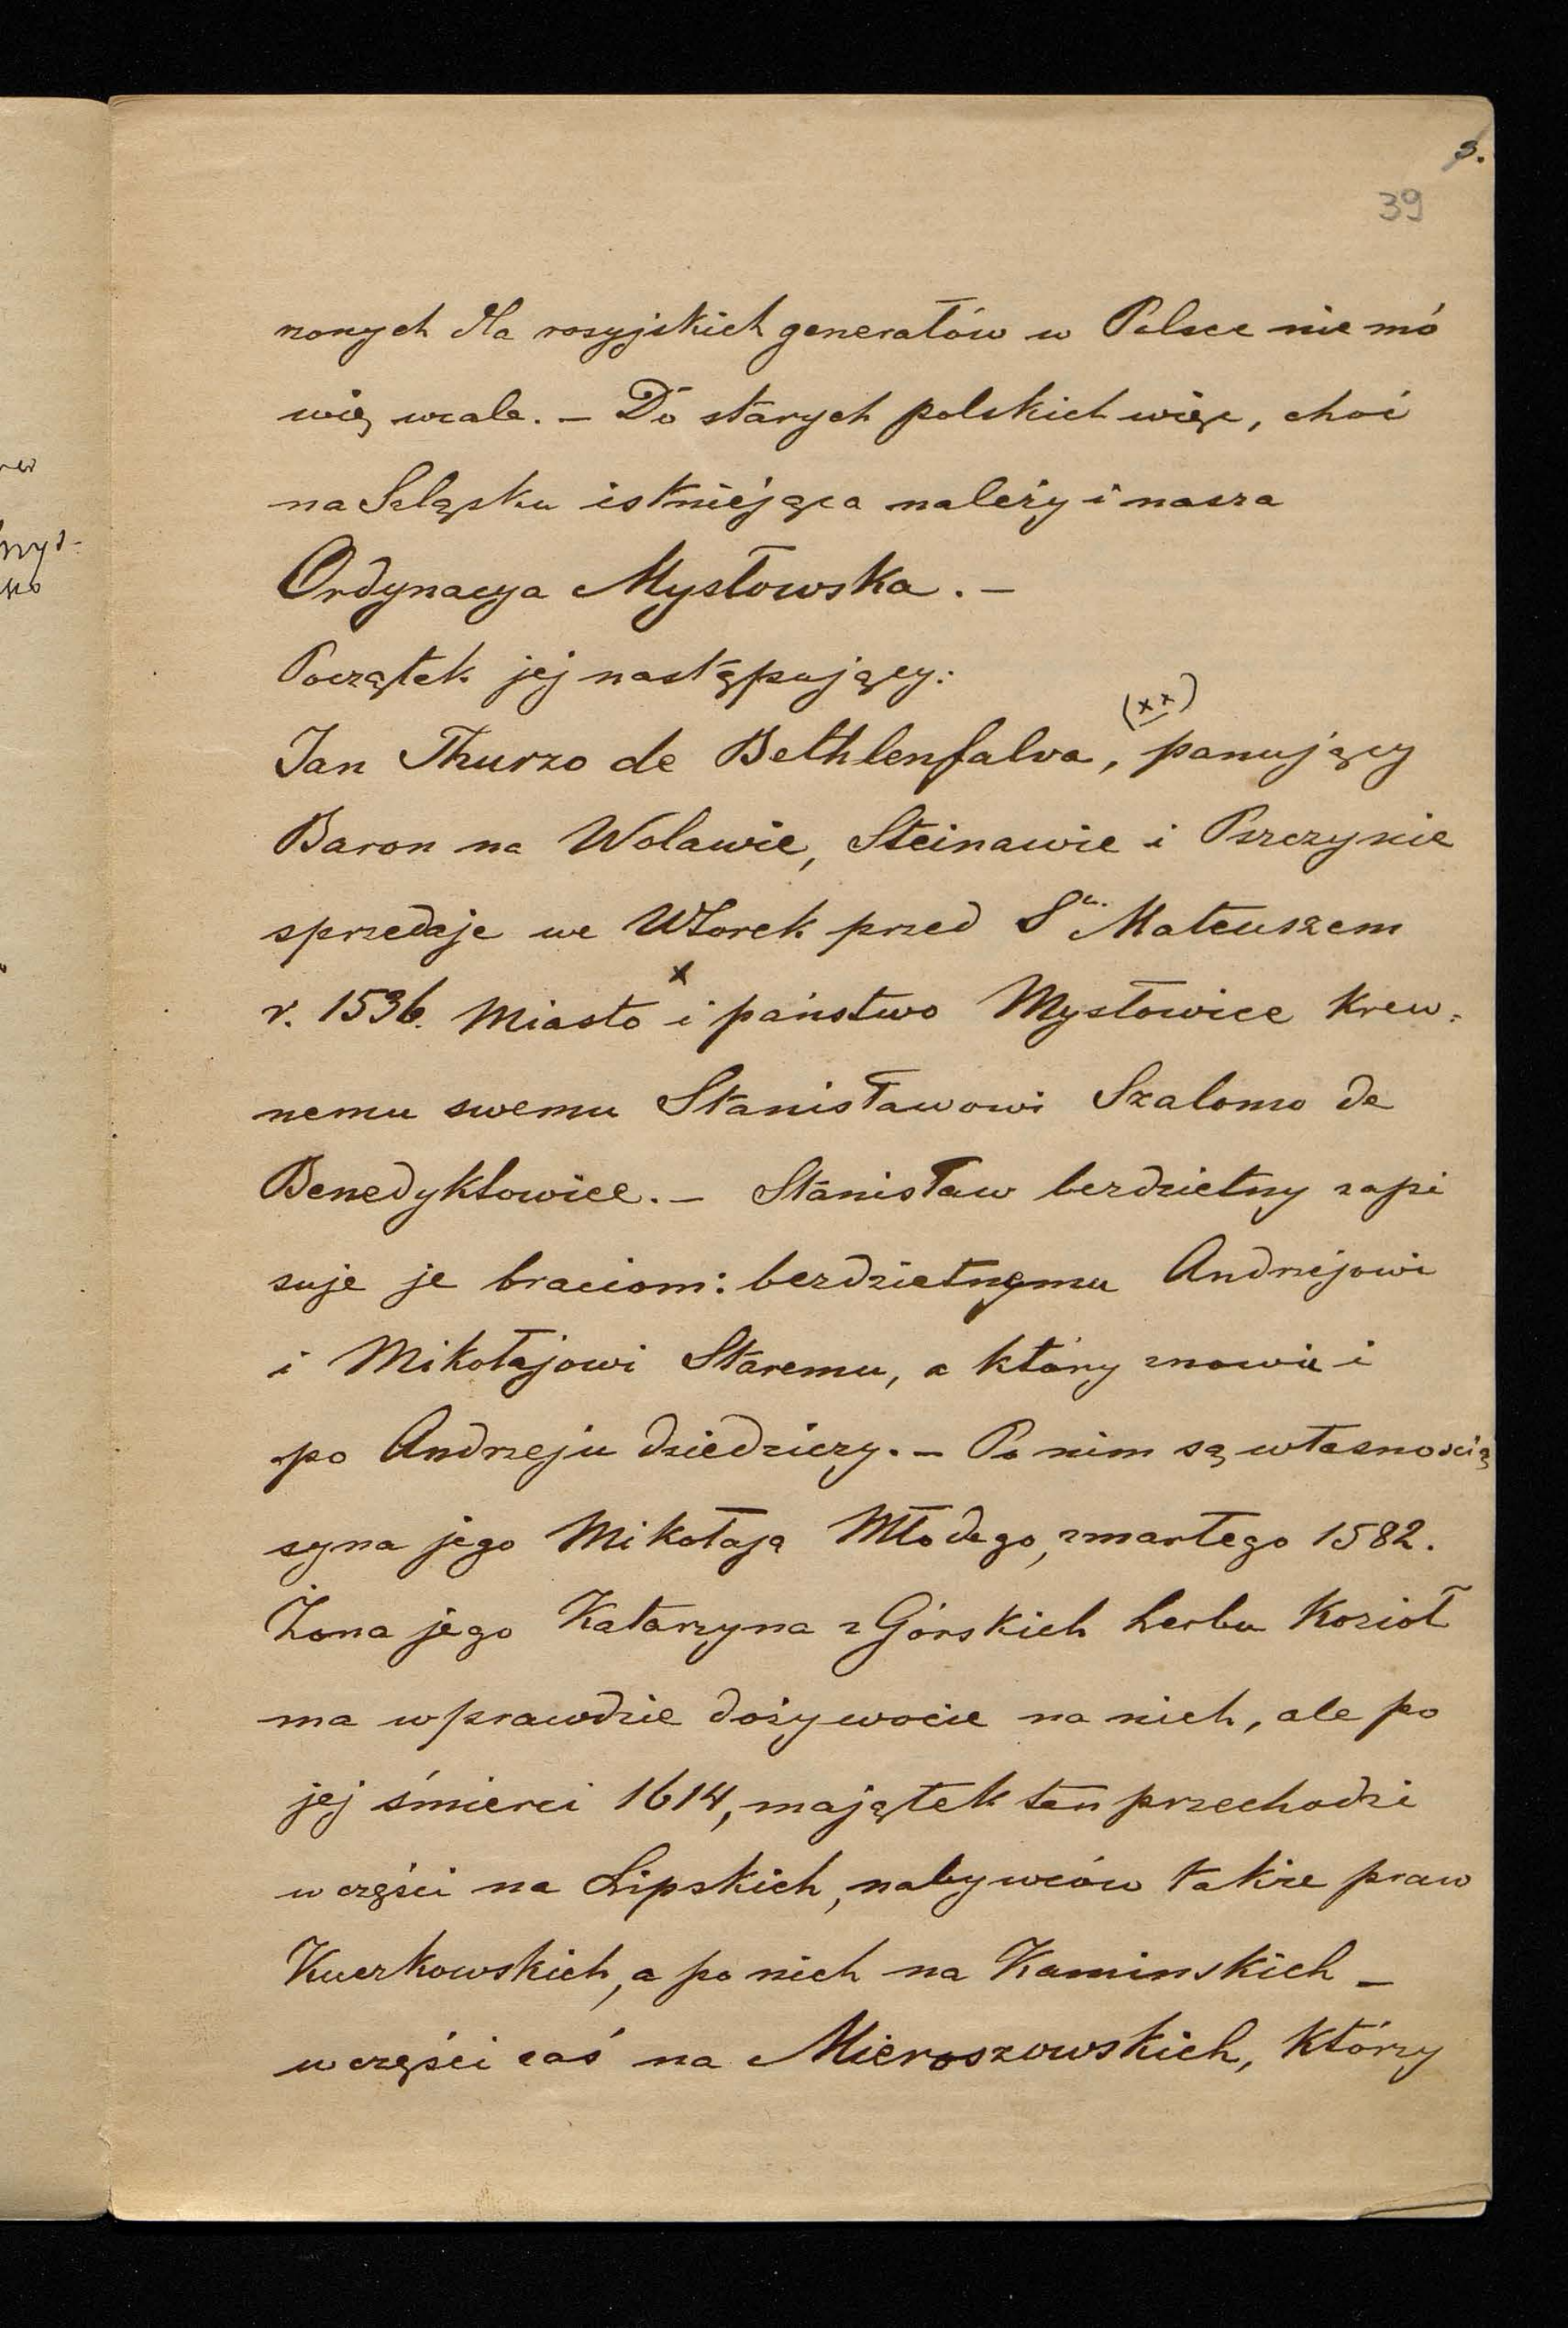 39
nonych dla rosyjskich generałów w Polsce nie mó
wię wcale. – Do starych polskich więc, choć
na Szląsku istniejąca należy i nasza
Ordynacya Mysłowska. –
Początek jej następujący:
(xx)
Jan Thurzo de Bethlenfalva, panujący
Baron na Wolawie, Steinawie i Pszczynie
sprzedaje we Wtorek przed Sw. Mateuszem
x
r. 1536. Miasto i państwo Mysłowice Krew-
nemu swemu Stanisławowi Szalomo de
Benedyktowice. – Stanisław bezdzietny zapi
suje je braciom: bezdzietnymu Andrzejowi
i Mikołajowi Staremu, a który znowu i
po Andrzeju dziedziczy. – Po nim są własnością
syna jego Mikołaja Młodego, zmarłego 1582.
Żona jego Katarzyna z Górskich herbu Kozioł
ma wprawdzie dożywocie na nich, ale po
jej śmierci 1614, majątek ten przechodzi
w części na Lipskich, nabywców także praw
Kuczkowskich, a po nich na Kaminskich –
w części zaś na Mieroszowskich, Którzy